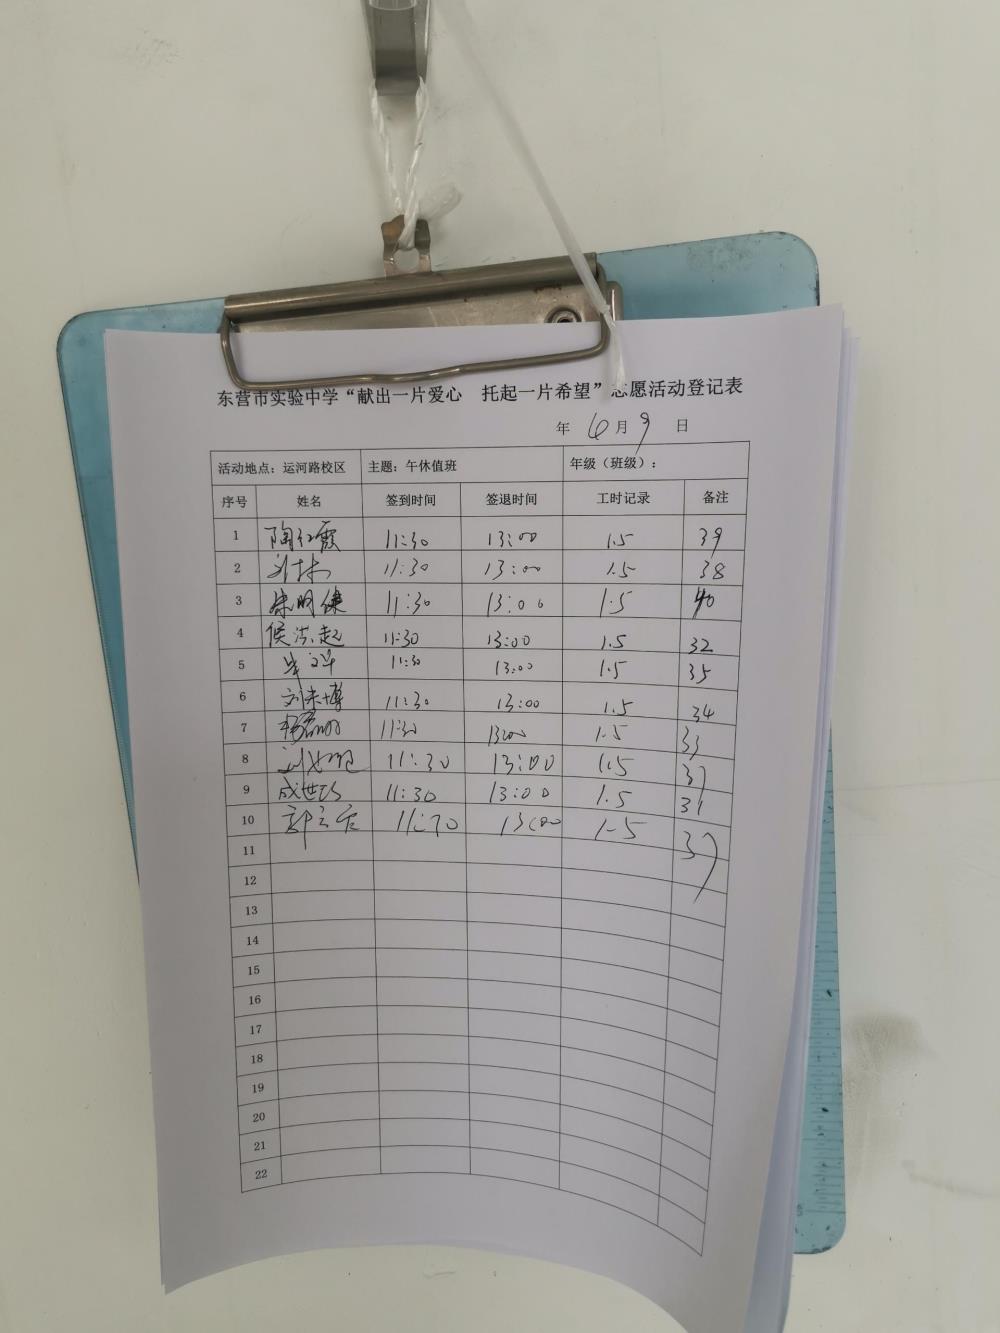 东营市实验中学“献出一片爱心 托起一片希望”志愿活动登记表
年 6月9日
活动地点：运河路校区 主题：午休值班 年级（班级）：
序号 姓名 签到时间 签退时间 工时记录 备注
1 陶红霞 11:30 13:00 1.5 39
2 刘林 11:30 13:00 1.5 38
3 朱明健 11:30 13:00 1.5 40
4 侯洪起 11:30 13:00 1.5 32
5 11:30 13:00 1.5 35
6 刘来博 11:30 13:00 1.5 34
7 11:30 13:00 1.5 33
8 11:30 13:00 1.5
9 成世巧 11:30 13:00 1.5 31
10 13:00 1.5 37
11
12
13
14
15
16
17
18
19
20
21
22